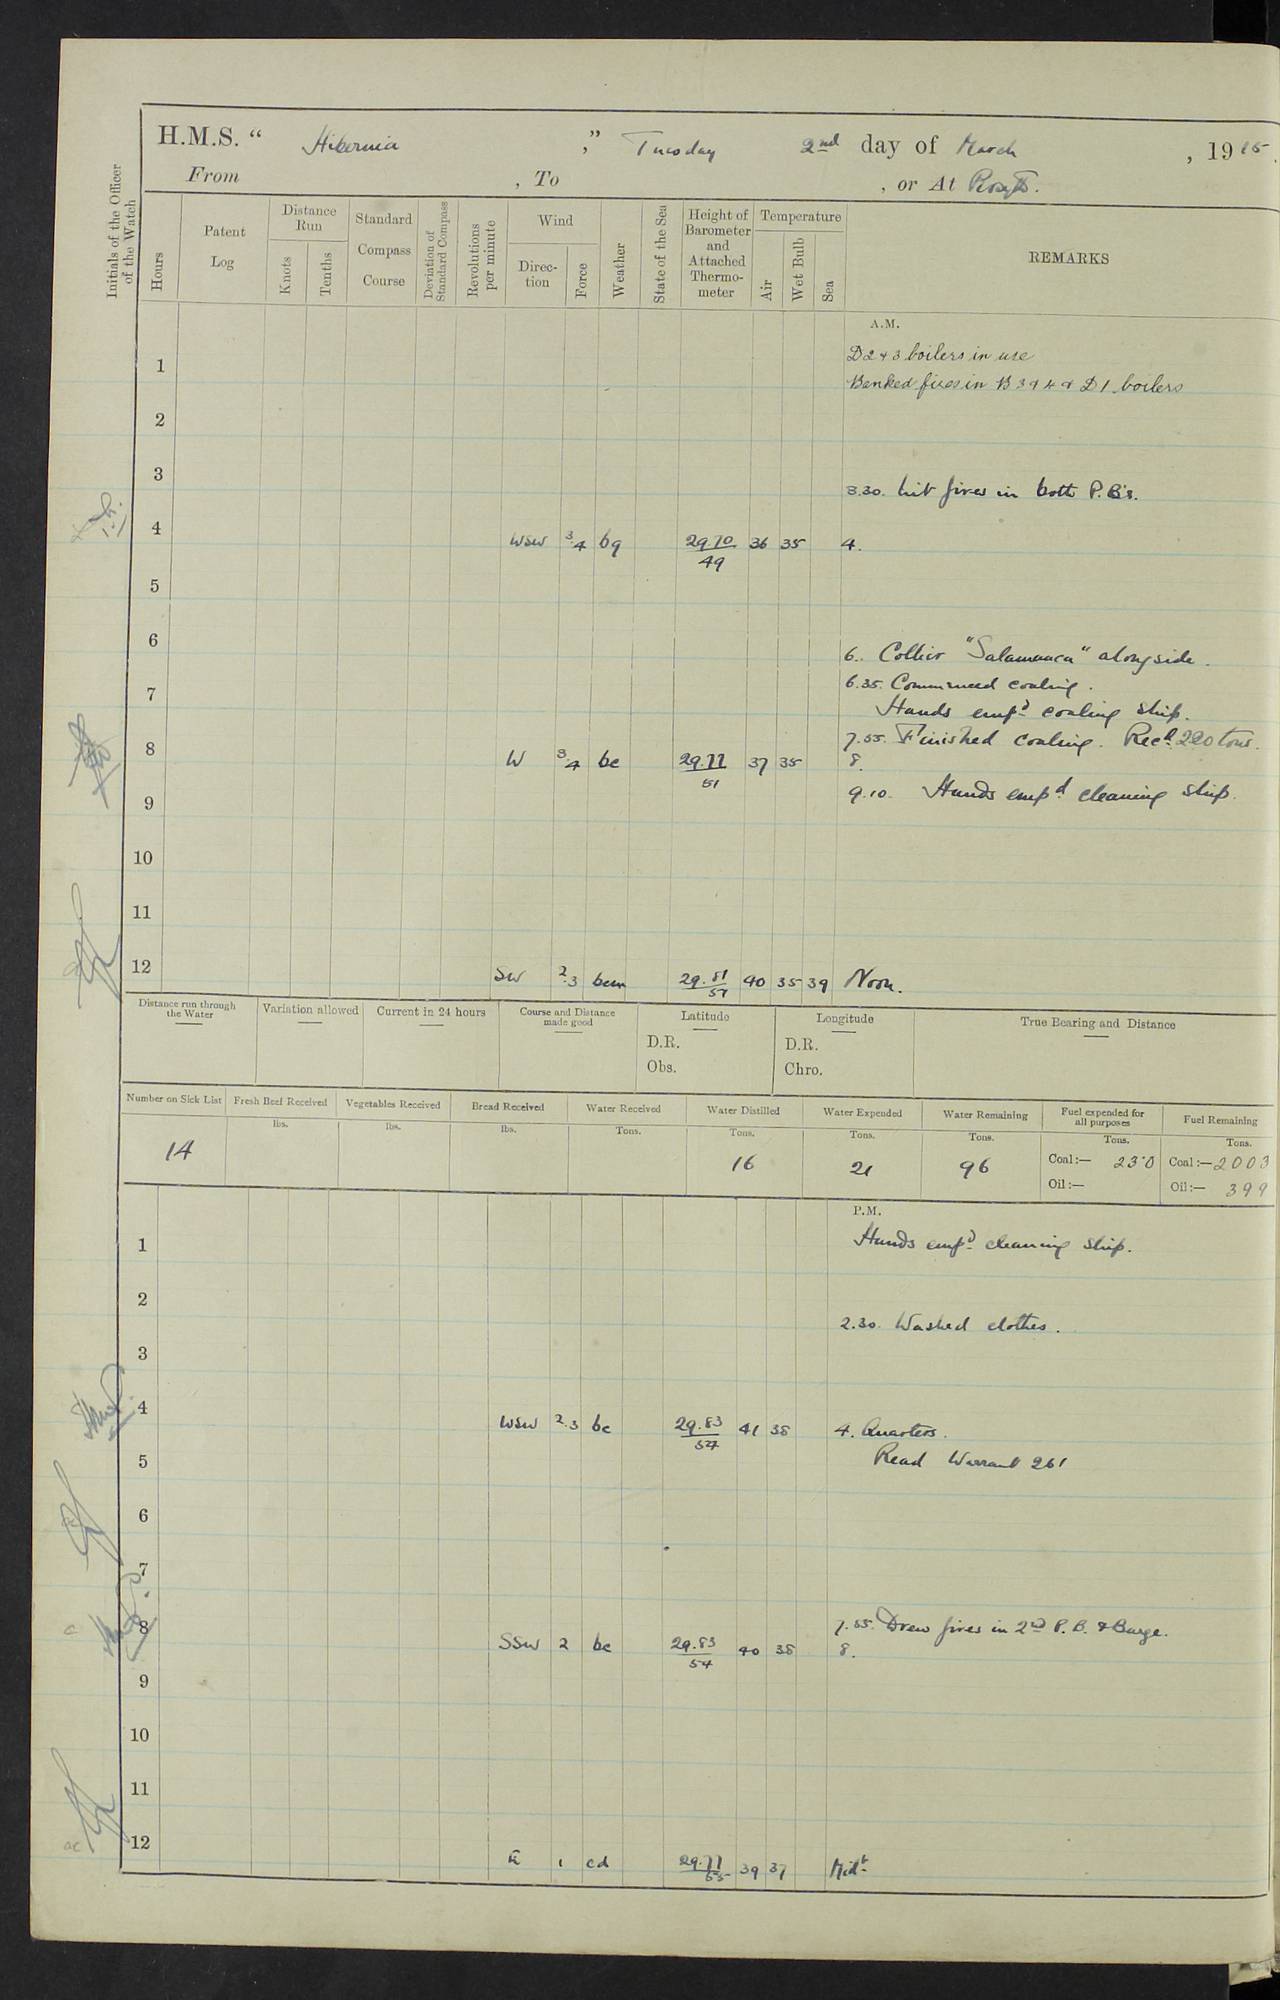 H.M.S. “ Hibernia ,” Tuesday 2nd day of March , 1915.
From , To , or At Rosyth.
Initials of the Officer of the Watch
Hours
Patent Log
Distance Run
Knots
Tenths
Standard Compass Course
Deviation of Standard Compass
Revolutions per minute
Wind
Direc-tion
Force
Weather
State of the Sea
Height of Barometer and Attached Thermo-meter
Temperature
Air
Wet Bulb
Sea
REMARKS
A.M.
D 2 & 3 boilers in use
1
Banked fires in B 3 & 4 & D 1 boilers
2
3
3.30. Lit fires in both P.B's.
4 WSW 3.4 bq 29.70/49 36 35 4.
5
6
6. Collier "Salamanca" alongside.
6.35. Commenced coaling.
7
Hands empd coaling ship.
7.55. Finished coaling. Recd. 220 tons.
8 W 3.4 bc 29.77/51 37 35 8.
9
9.10. Hands empd cleaning ship.
10
11
12 SW 2.3 bcm 29.81/57 40 35 39 Noon.
Distance run through the Water
Variation allowed
Current in 24 hours
Course and Distance made good
Latitude
D.R.
Obs.
Longitude
D.R.
Chro.
True Bearing and Distance
Number on Sick List
Fresh Beef Received
Vegetables Received
Bread Received
Water Received
Water Distilled
Water Expended
Water Remaining
Fuel expended for all purposes
Fuel Remaining
lbs. lbs. lbs. Tons. Tons. Tons. Tons. Tons. Tons.
14 16 21 96 Coal:— 23·0 Coal:— 2003
Oil:— Oil:— 399
P.M.
1 Hands empd cleaning ship.
2
2.30. Washed clothes.
3
4 WSW 2.3 bc 29.83/54 41 38 4. Quarters.
5 Read Warrant 261
6
7
7.55. Drew fires in 2nd P.B. & Barge.
8 SSW 2 bc 29.83/54 40 38 8.
9
10
11
12 E 1 cd 29.77/55 39 37 Midt.